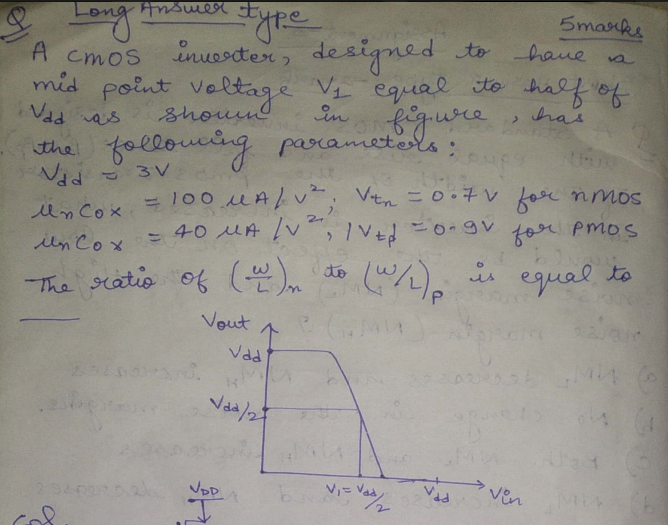 Q Long Answer type
5marks
A CMOS inverter, designed to have a
mid point voltage V1 equal to half of
Vdd as shown in figure, has
the following parameters:
Vdd = 3V
μnCox = 100 μA/V², Vtn = 0.7V for nMOS
μnCox = 40 μA/V², |Vtp| = 0.9V for PMOS
The ratio of (W/L)n to (W/L)p is equal to
Vout
Vdd
Vdd/2
V1 = Vdd/2
Vdd
Vin
VDD
Sol.